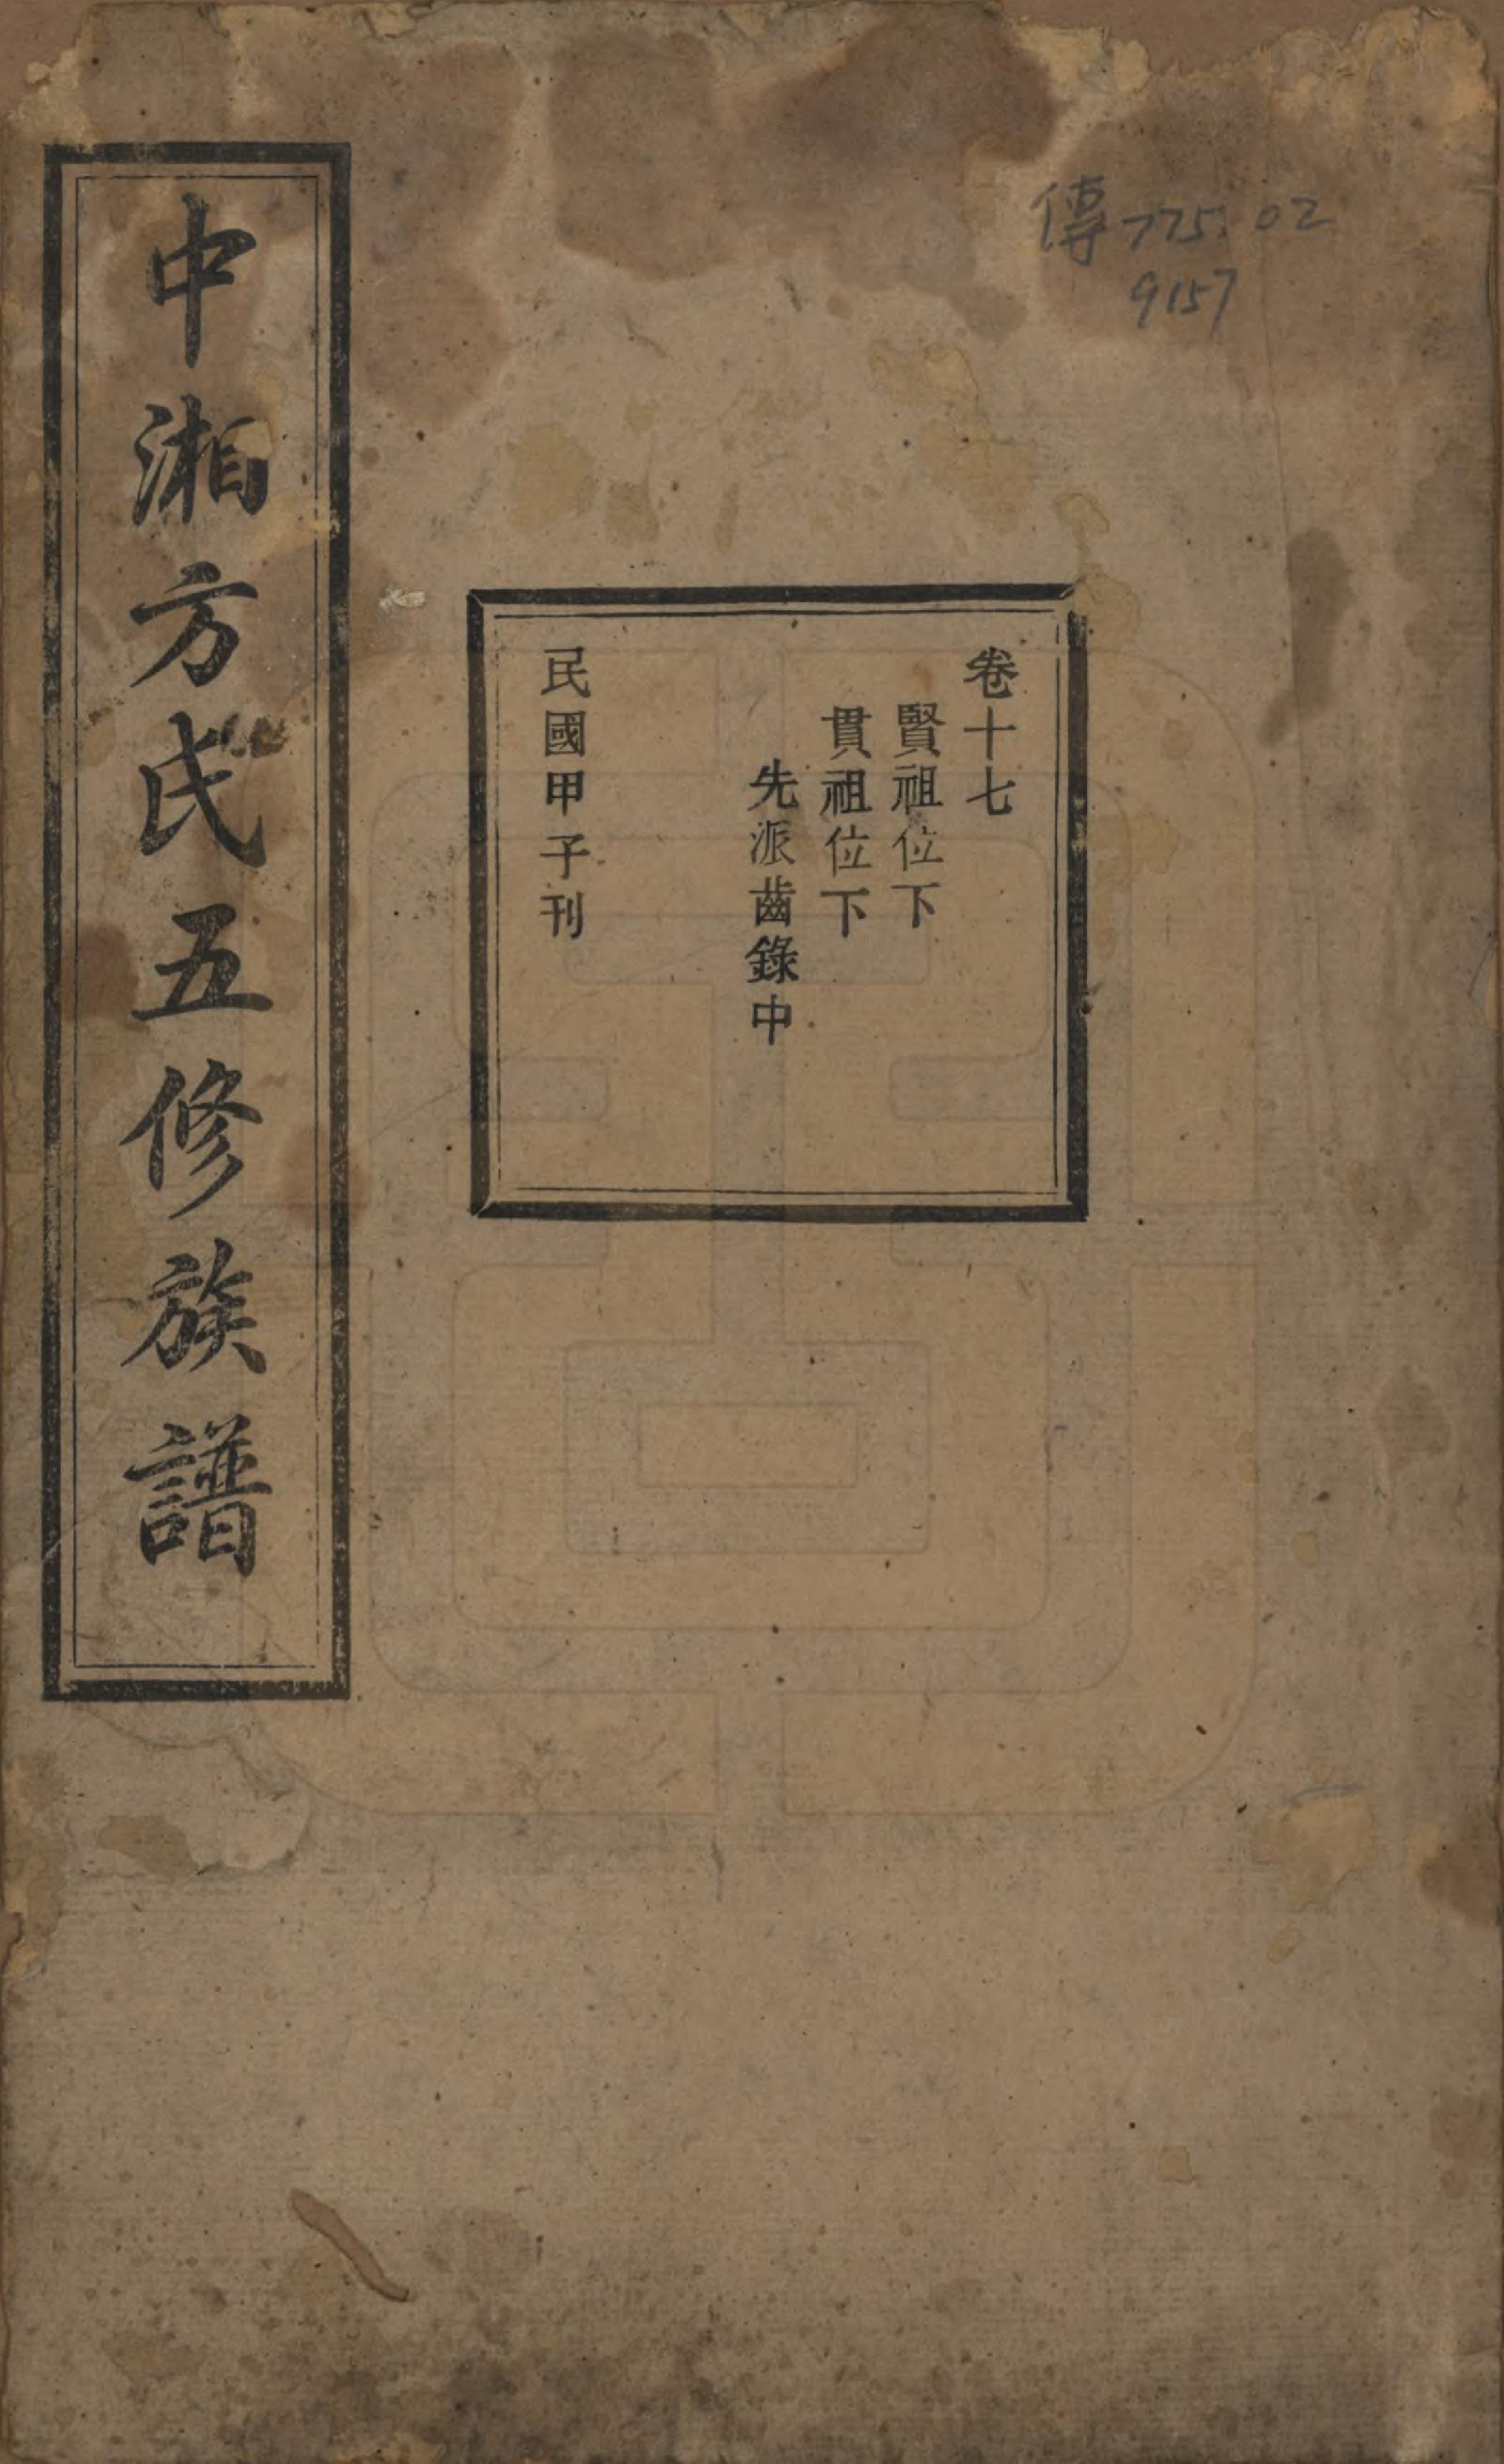 傳775.02
9157
卷十七
賢祖位下
貫祖位下
先派齒錄中
民國甲子刊
中湘方氏五修族譜